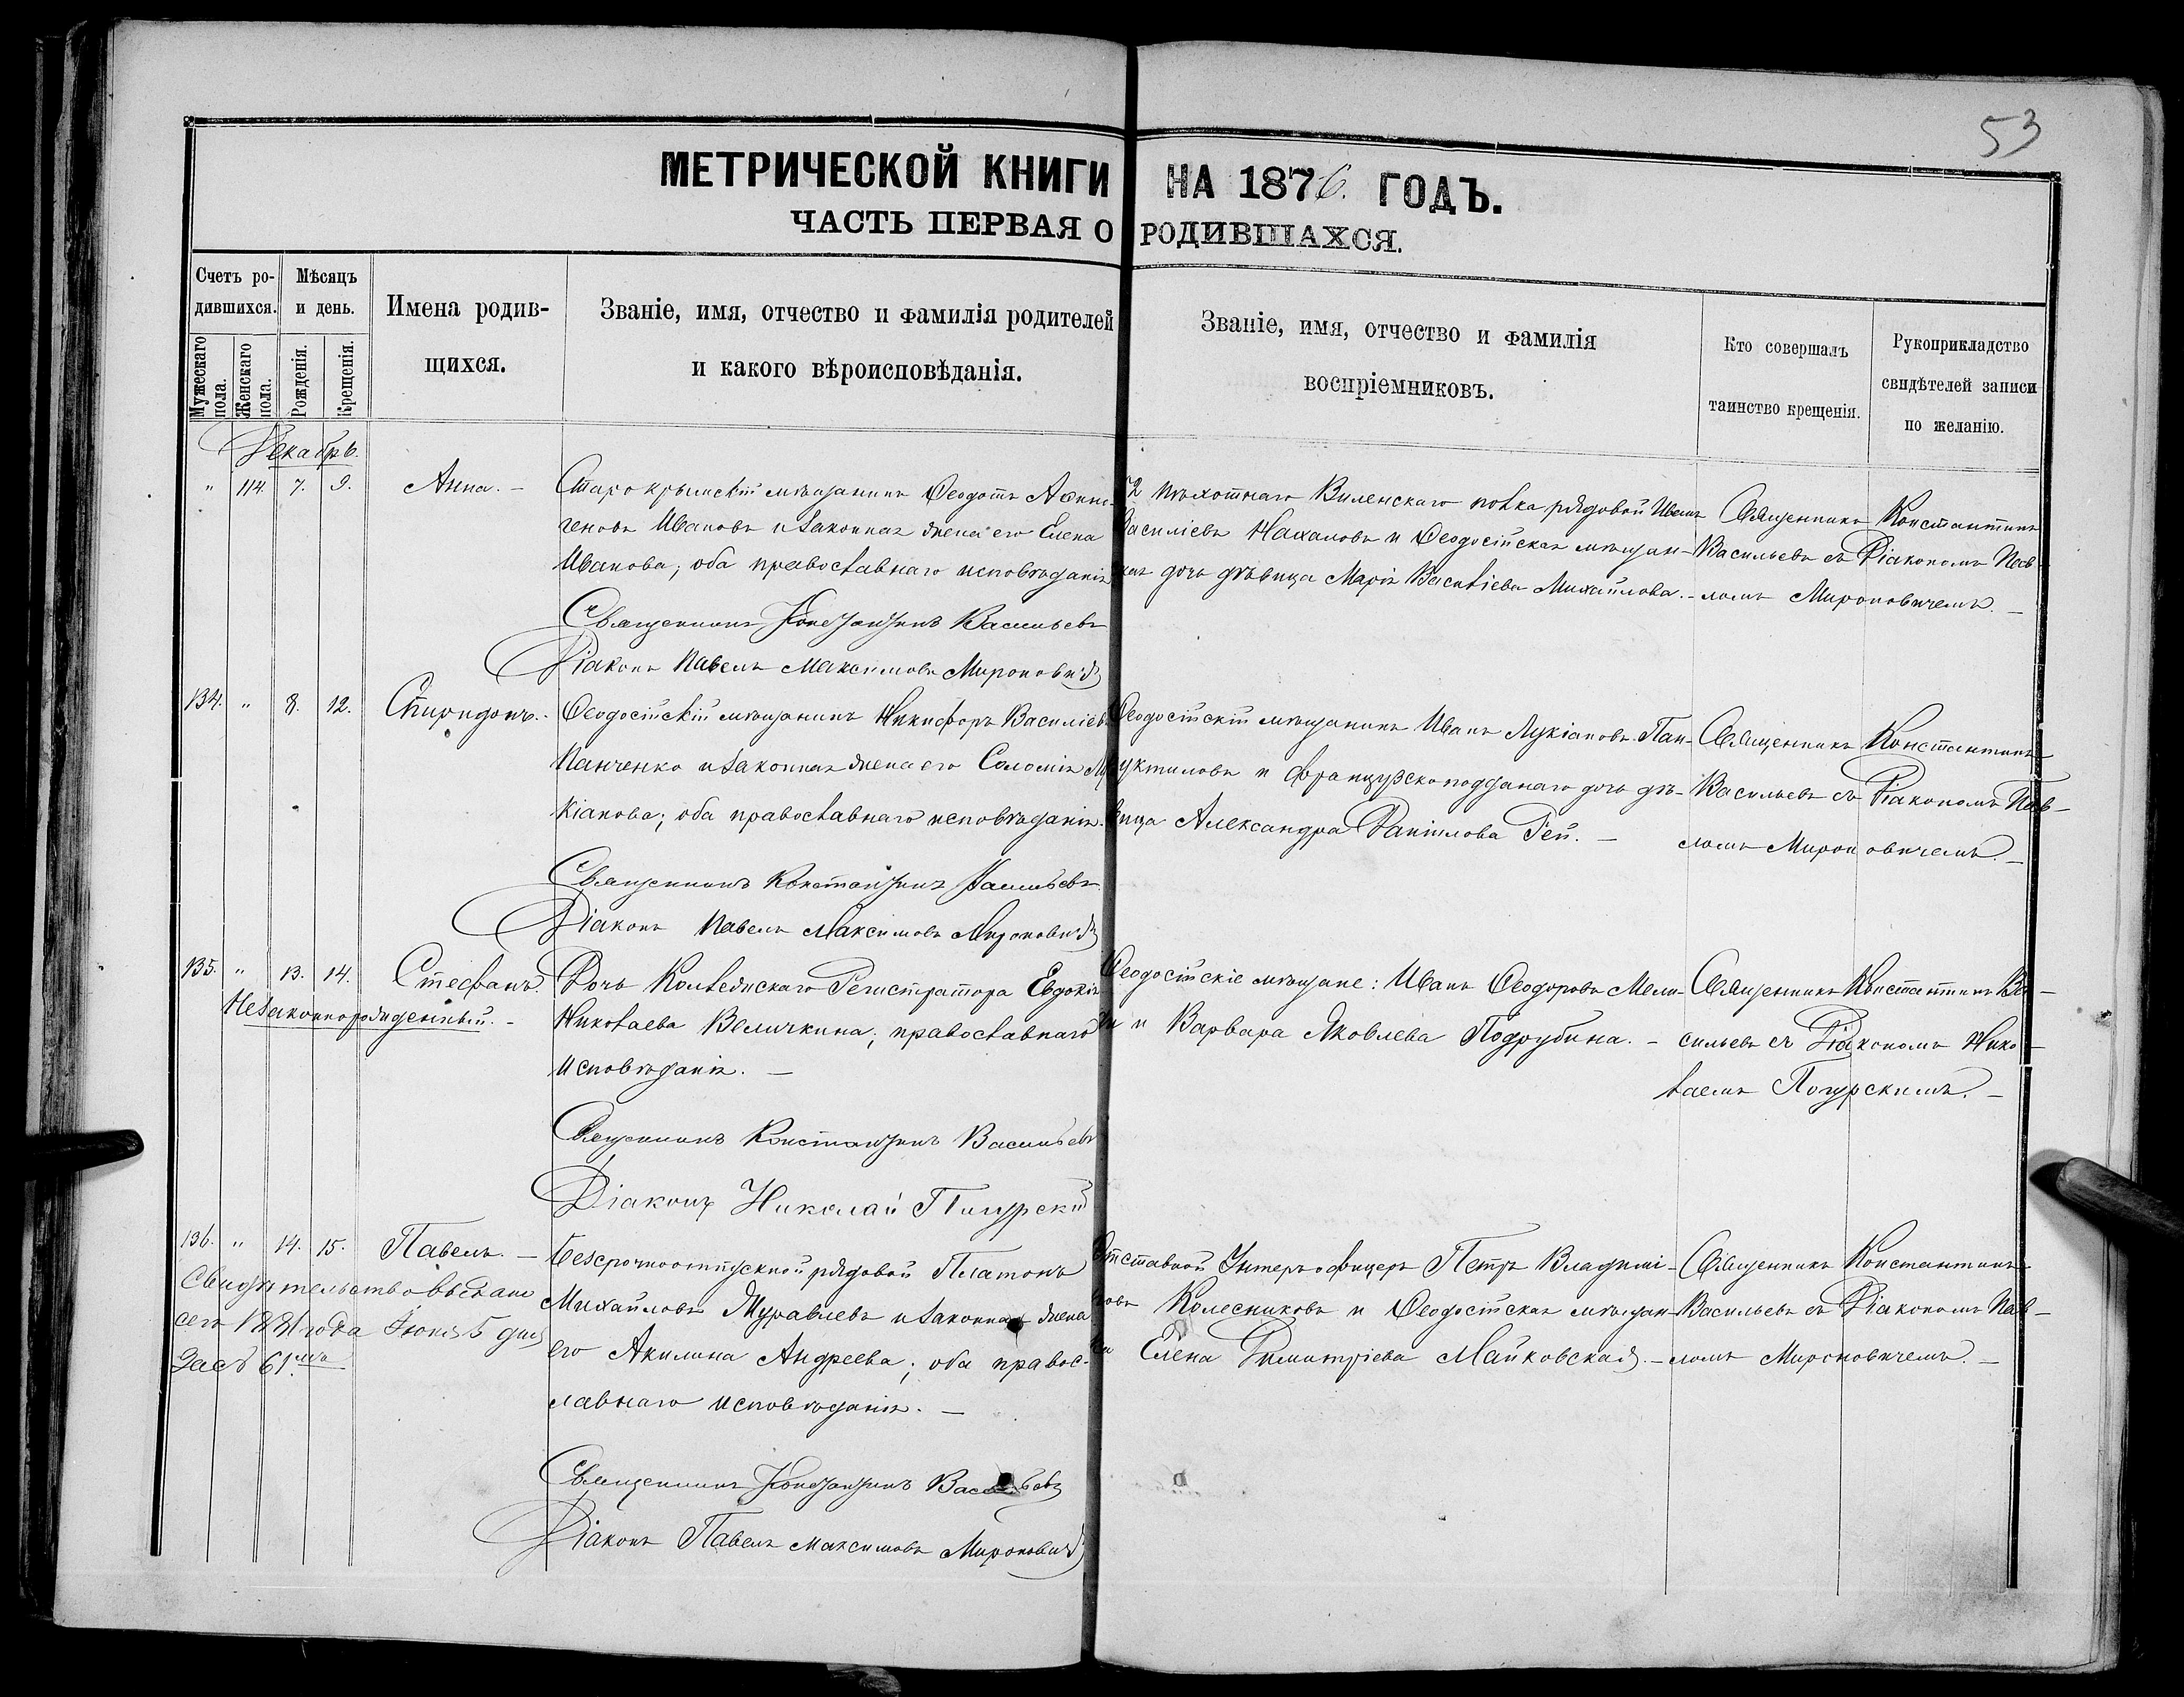 53
МЕТРИЧЕСКОЙ КНИГИ НА 1876. ГОДЪ.
ЧАСТЬ ПЕРВАЯ О РОДИВШАХСЯ.
Счетъ ро-
дившихся.
Мужескаго пола.
Женскаго пола.
Мѣсяцъ
и день.
Рожденія.
Крещенія.
Имена родив-
щихся.
Званіе, имя, отчество и фамилія родителей
и какого вѣроисповѣданія.
Званіе, имя, отчество и фамилія
воспріемниковъ.
Кто совершалъ
таинство крещенія.
Рукоприкладство
свидѣтелей записи
по желанію.
Декабрь.
" 114. 7. 9. Анна. —
Старокрымскій мѣщанинъ Ѳеодотъ Аѳино-
геновъ Ивановъ и законная жена его Елена
Иванова; оба православнаго исповѣданія
Священникъ Константинъ Васильевъ
Діаконъ Павелъ Максимовъ Мироновичъ
52 пѣхотнаго Виленскаго полка рядовой Иванъ
Василіевъ Нахаловъ и Ѳеодосійская мѣщан-
ская дочь дѣвица Марія Василіева Михайлова. —
Священникъ Константинъ
Васильевъ съ Діакономъ Пав-
ломъ Мироновичемъ. —
134. " 8. 12. Спиридонъ. —
Ѳеодосійскій мѣщанинъ Никифоръ Василіевъ
Панченко и законная жена его Соломія Лу-
кіанова; оба православнаго исповѣданія.
Священникъ Константинъ Васильевъ
Діаконъ Павелъ Максимовъ Мироновичъ
Ѳеодосійскій мѣщанинъ Иванъ Лукіановъ Пан-
уктиловъ и французскоподданаго дочь дѣ-
вица Александра Даніилова Гей. —
Священникъ Константинъ
Васильевъ съ Діакономъ Пав-
ломъ Мироновичемъ. —
135. " 13. 14. Стефанъ.
Незаконнорожденный. —
Дочь Коллежскаго Регистратора Евдокія
Николаева Величкина; православнаго
исповѣданія. —
Священникъ Константинъ Васильевъ
Діаконъ Николай Пигурскій
Ѳеодосійскіе мѣщане: Иванъ Ѳеодоровъ Мели-
и Варвара Яковлева Подрубина. —
Священникъ Константинъ Ва-
сильевъ съ Діакономъ Нико-
лаемъ Погурскимъ. —
136. " 14. 15. Павелъ. —
Свидѣтельство выдано
сего 1881 года Іюня 5 дня
за съ 61.мъ
Безсрочноотпускной рядовой Платонъ
Михайловъ Муравлевъ и законная жена
его Акилина Андреева; оба правос-
лавнаго исповѣданія. —
Священникъ Константинъ Васильевъ
Діаконъ Павелъ Максимовъ Мироновичъ
Отставной Унтеръ офицеръ Петръ Владимі-
ровъ Колесниковъ и Ѳеодосійская мѣщан-
ка Елена Димитріева Майковская. —
Священникъ Константинъ
Васильевъ съ Діакономъ Пав-
ломъ Мироновичемъ. —